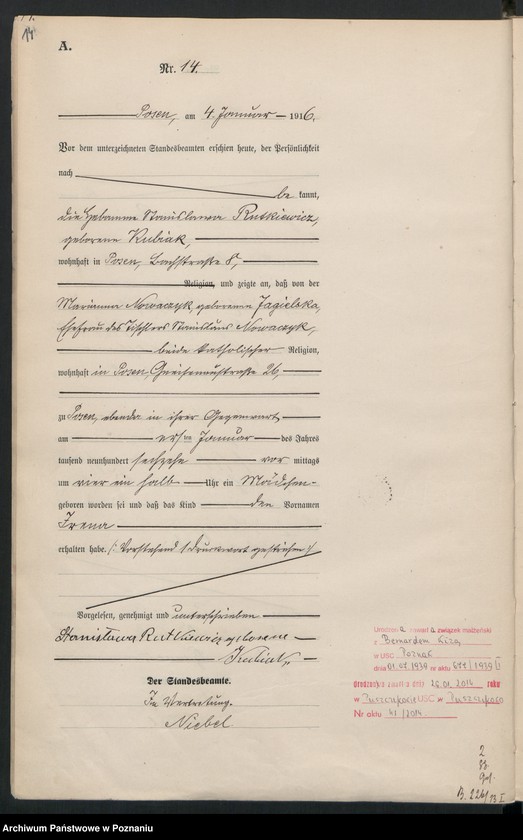 14
A.
Nr. 14.
Posen, am 4. Januar 1916.
Vor dem unterzeichneten Standesbeamten erschien heute, der Persönlichkeit
nach
be kannt,
die Hebamme Stanislawa Rutkiewicz,
geborene Kubiak,
wohnhaft in Posen, Bachstraße 8,
Religion, und zeigte an, daß von der
Marianna Nowaczyk, geborenen Jagielska,
Ehefrau des Tischlers Stanislaus Nowaczyk,
beide katholischer Religion,
wohnhaft in Posen, Gneisenaustraße 26,
zu Posen, ebenda in ihrer Gegenwart
am ersten Januar des Jahres
tausend neunhundert sechzehn vor mittags
um vier ein halb Uhr ein Mädchen
geboren worden sei und daß das Kind den Vornamen
Irena
erhalten habe. (: Vorstehend 1 Druckwort gestrichen :)
Vorgelesen, genehmigt und unterschrieben
Stanisława Rutkiewicz geborene
Kubiak
Der Standesbeamte.
In Vertretung.
Niebel
Urodzona zawarła związek małżeński
z Bernardem
w USC Poznań
dnia 01.07.1939 nr aktu 671/1939/I
urodzona zmarła dnia 26.01.2014 roku
w Puszczykowie USC w Puszczykowo
Nr aktu 41/2014.
2
Archiwum Państwowe w Poznaniu